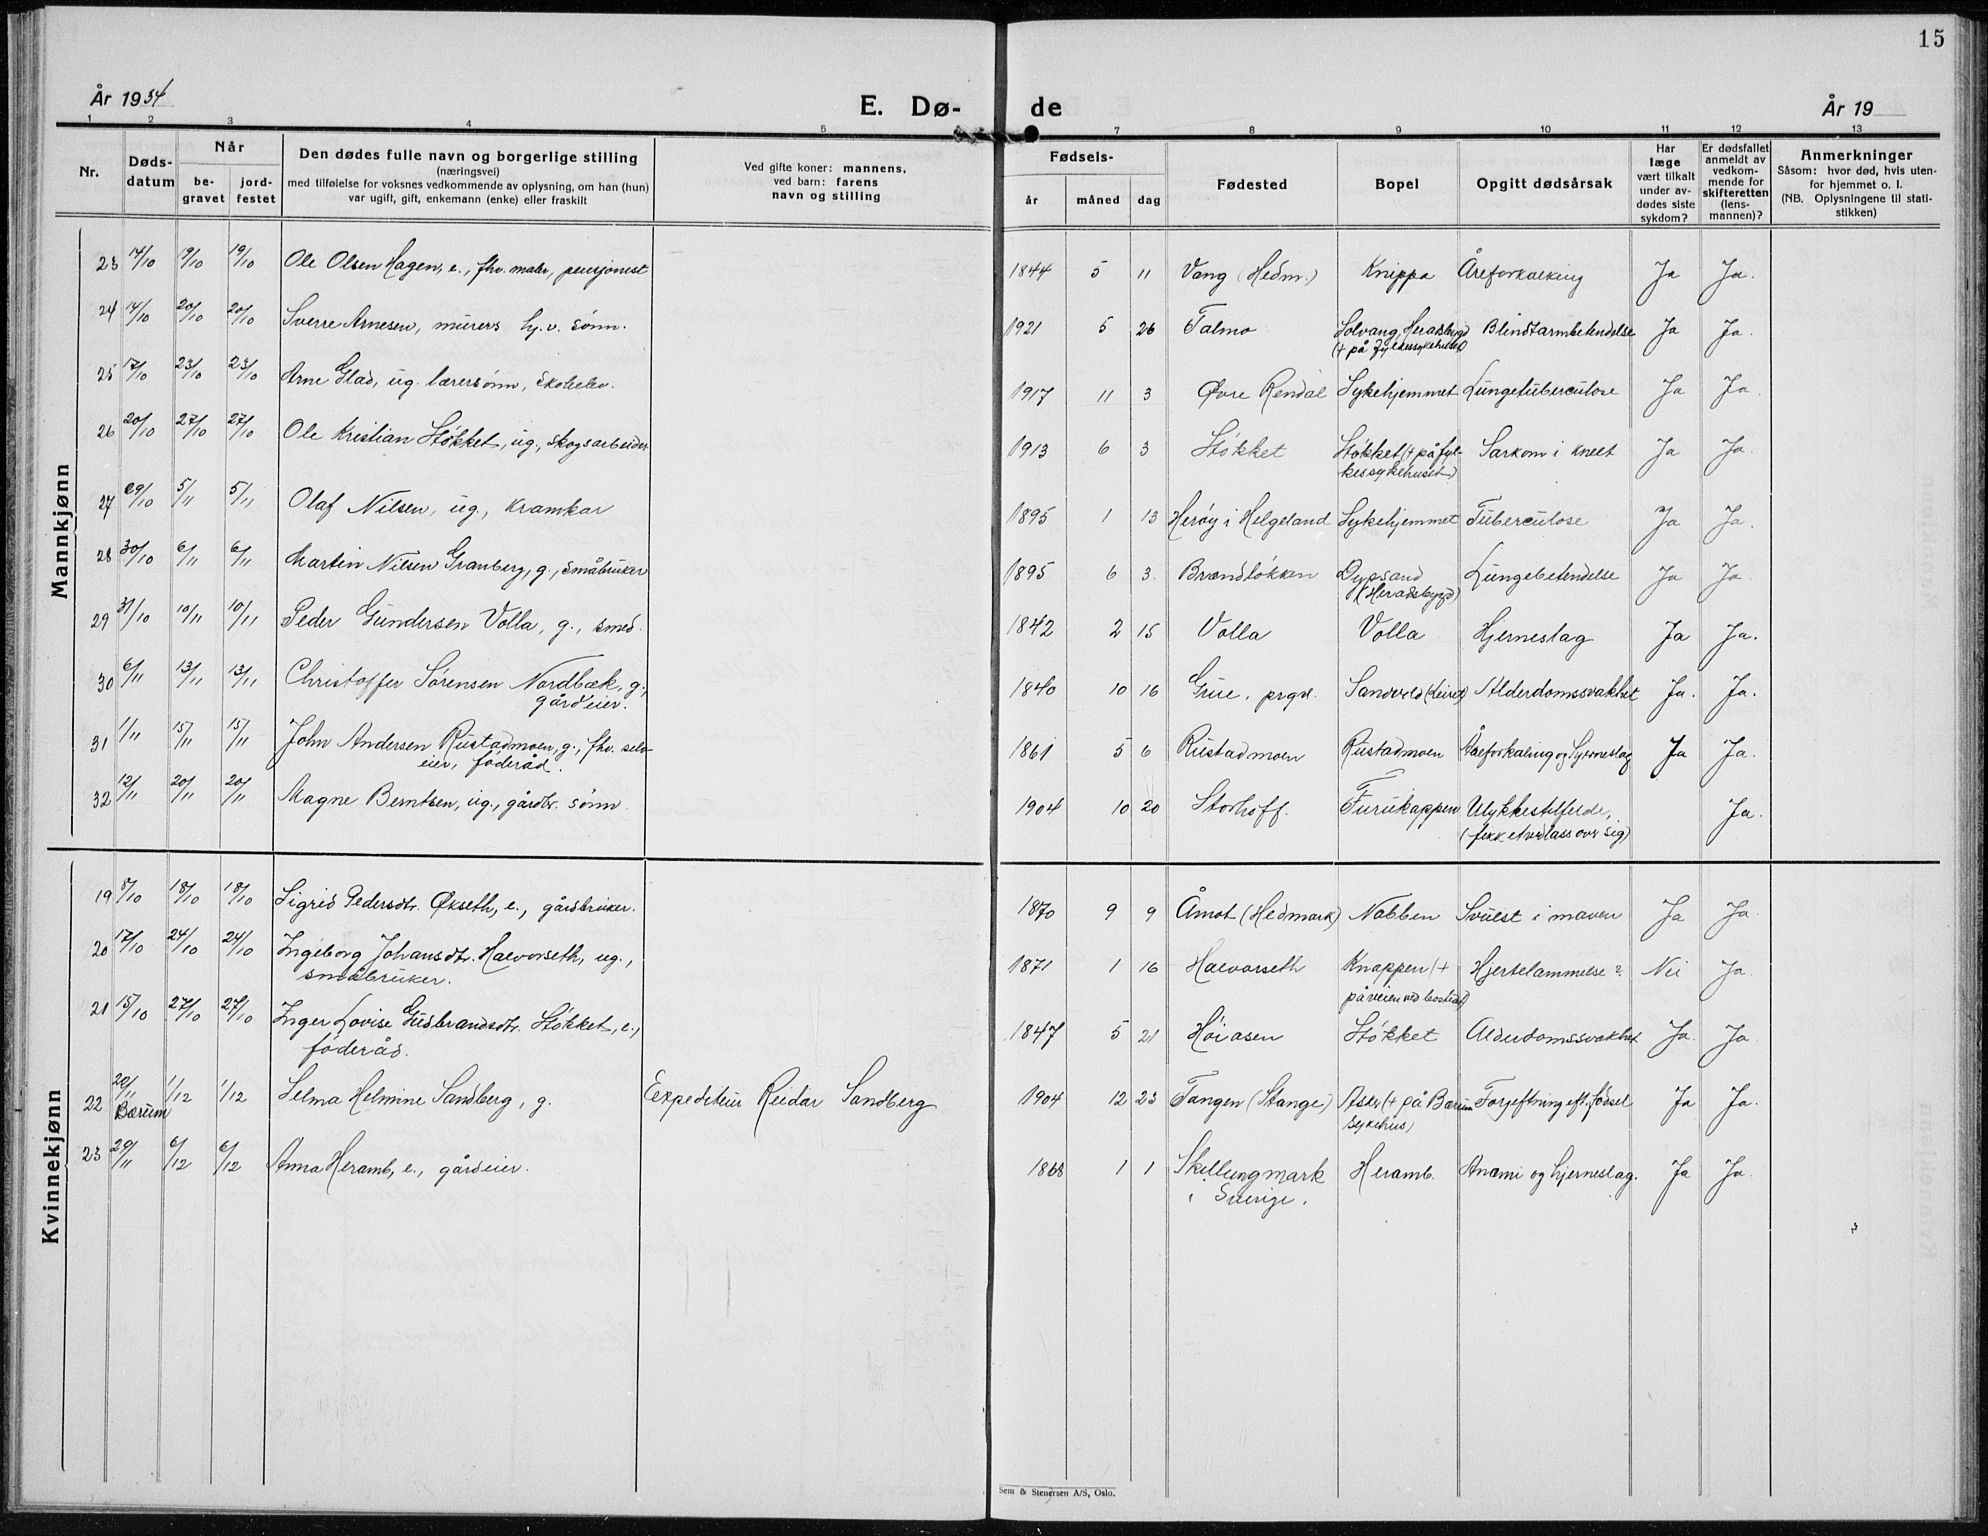 15
År 1934
E. Dø-
de
År 19
1 2 3 4 5 7 8 9 10 11 12 13
Nr.
Døds-
datum
Når
be-
gravet
jord-
festet
Den dødes fulle navn og borgerlige stilling
(næringsvei)
med tilføielse for voksnes vedkommende av oplysning, om han (hun)
var ugift, gift, enkemann (enke) eller fraskilt
Ved gifte koner: mannens,
ved barn: farens
navn og stilling
Fødsels-
år
måned
dag
Fødested
Bopel
Opgitt dødsårsak
Har
læge
vært tilkalt
under av-
dødes siste
sykdom?
Er dødsfallet
anmeldt av
vedkom-
mende for
skifteretten
(lens-
mannen)?
Anmerkninger
Såsom: hvor død, hvis uten-
for hjemmet o. l.
(NB. Oplysningene til stati-
stikken)
Mannkjønn
23 14/10 19/10 19/10 Ole Olsen Hagen, e., fhv. maler, pensjonist 1844 5 11 Vang (Hedm.) Knippa Åreforkalking Ja Ja.
24 14/10 20/10 20/10 Sverre Arnesen, murers hj. v. sønn. 1921 5 26 Talmo Solvang, Heradsbygd Blindtarmbetendelse Ja Ja.
(+ på fylkessykehuset)
25 17/10 23/10 23/10 Arne Glad, ug. lærersønn, skoleelev. 1917 11 3 Øvre Rendal Sykehjemmet Lungetuberculose Ja Ja.
26 20/10 27/10 27/10 Ole Kristian Støkket, ug., skogsarbeider 1913 6 3 Støkket Støkket (+ på fyl- Sarkom i kneet Ja Ja.
kessykehuset)
27 29/10 5/11 5/11 Olaf Nilsen, ug., kramkar 1895 1 13 Herøy i Helgeland Sykehjemmet Tuberculose Ja Ja.
28 30/10 6/11 6/11 Martin Nilsen Granberg, g., småbruker 1895 6 3. Brændløkken Dypsand Lungebetendelse Ja Ja.
(Heradsbygd)
29 31/10 10/11 10/11 Peder Gundersen Volla, g., smed. 1842 2 15 Volla Volla Hjerneslag Ja Ja.
30 6/11 13/11 13/11 Christoffer Sørensen Nordbæk, g., 1840 10 16 Grue. prgd. Sandvold (Leiret) Alderdomssvakhet Ja. Ja.
gårdeier.
31 1/11 15/11 15/11 John Andersen Rustadmoen, g., fhv. selv- 1861 5 6 Rustadmoen Rustadmoen Åreforkalking og hjerneslag Ja Ja.
eier, føderåd.
32 12/11 20/11 20/11 Magne Berntsen, ug., gårdbr. sønn. 1904 10 20 Storhoff. Furukappen Ulykkestilfelde, Ja.
(fikk et vedlass over sig)
Kvinnekjønn
19 8/10 18/10 18/10 Sigrid Pedersdtr. Økseth, e., gårdbruker. 1870 9 9 Åmot (Hedmark) Nabben Svulst i maven Ja Ja
20 17/10 24/10 24/10 Ingeborg Johansdtr. Halvorseth, ug., 1871 1 16 Halvorseth Knappen (+ Hjertelammelse? Nei Ja
småbruker. på veien ved bostedet)
21 15/10 27/10 27/10 Inger Lovise Gudbrandsdtr. Støkket, e., 1847 5 21 Høiåsen Støkket Alderdomssvakhet Ja. Ja
føderåd.
22 20/11 1/12 1/12 Selma Helmine Sandberg, g. Expediteur Reidar Sandberg 1904 12 23 Tangen (Stange) Asker (+ på Bærum Forgiftning eft. fødsel Ja Ja.
Bærum sykehus)
23 29/11 6/12 6/12 Anna Heramb, e., gårdeier. 1868 1 1 Skillingmark Heramb. Anæmi og hjerneslag. Ja Ja.
i Sverige.
Sem & Stenersen A/S, Oslo.